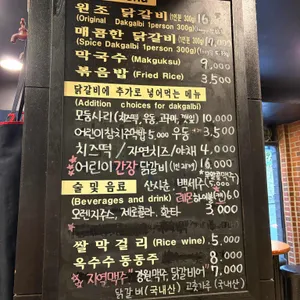 원조 닭갈비 (1인분 300g) 16,
(Original Dakgalbi 1person 300g)
매콤한 닭갈비 (1인분 300g) 17,000
(Spice Dakgalbi 1person 300g)
막국수 (Makguksu) 9,000
볶음밥 (Fried Rice) 3,500
닭갈비에 추가로 넣어먹는 메뉴
(Addition choices for dakgalbi)
모듬사리 (치즈떡, 우동, 고구마, 깻잎) 10,000
어린이참치주먹밥 5,000 우동 3,500
치즈떡 / 자연치즈 / 야채 4,000
어린이 간장 닭갈비 16,000
술 및 음료
(Beverages and drink)
산사춘 백세주 6,0
오렌지쥬스, 제로콜라, 환타 3,000
쌀 막 걸 리 (Rice wine) 5,000
옥수수 동동주 8,000
"지역맥주" 강원맥주 7,000
닭갈비 (국내산) 고춧가루 (국내산)